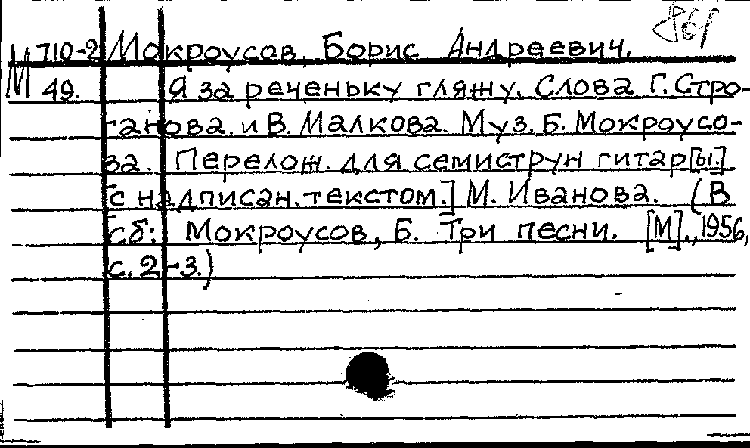 861
М 710-2 Мокроусов, Борис Андреевич.
49. Я за реченьку гляжу. Слова Г. Стро-
ганова и В. Малкова. Муз. Б. Мокроусо-
ва. Перелож. для семиструн гитар[ы.]
[с надписан. текстом.] М. Иванова. (В
сб: Мокроусов, Б. Три песни. [М]., 1956,
с. 2-3.)